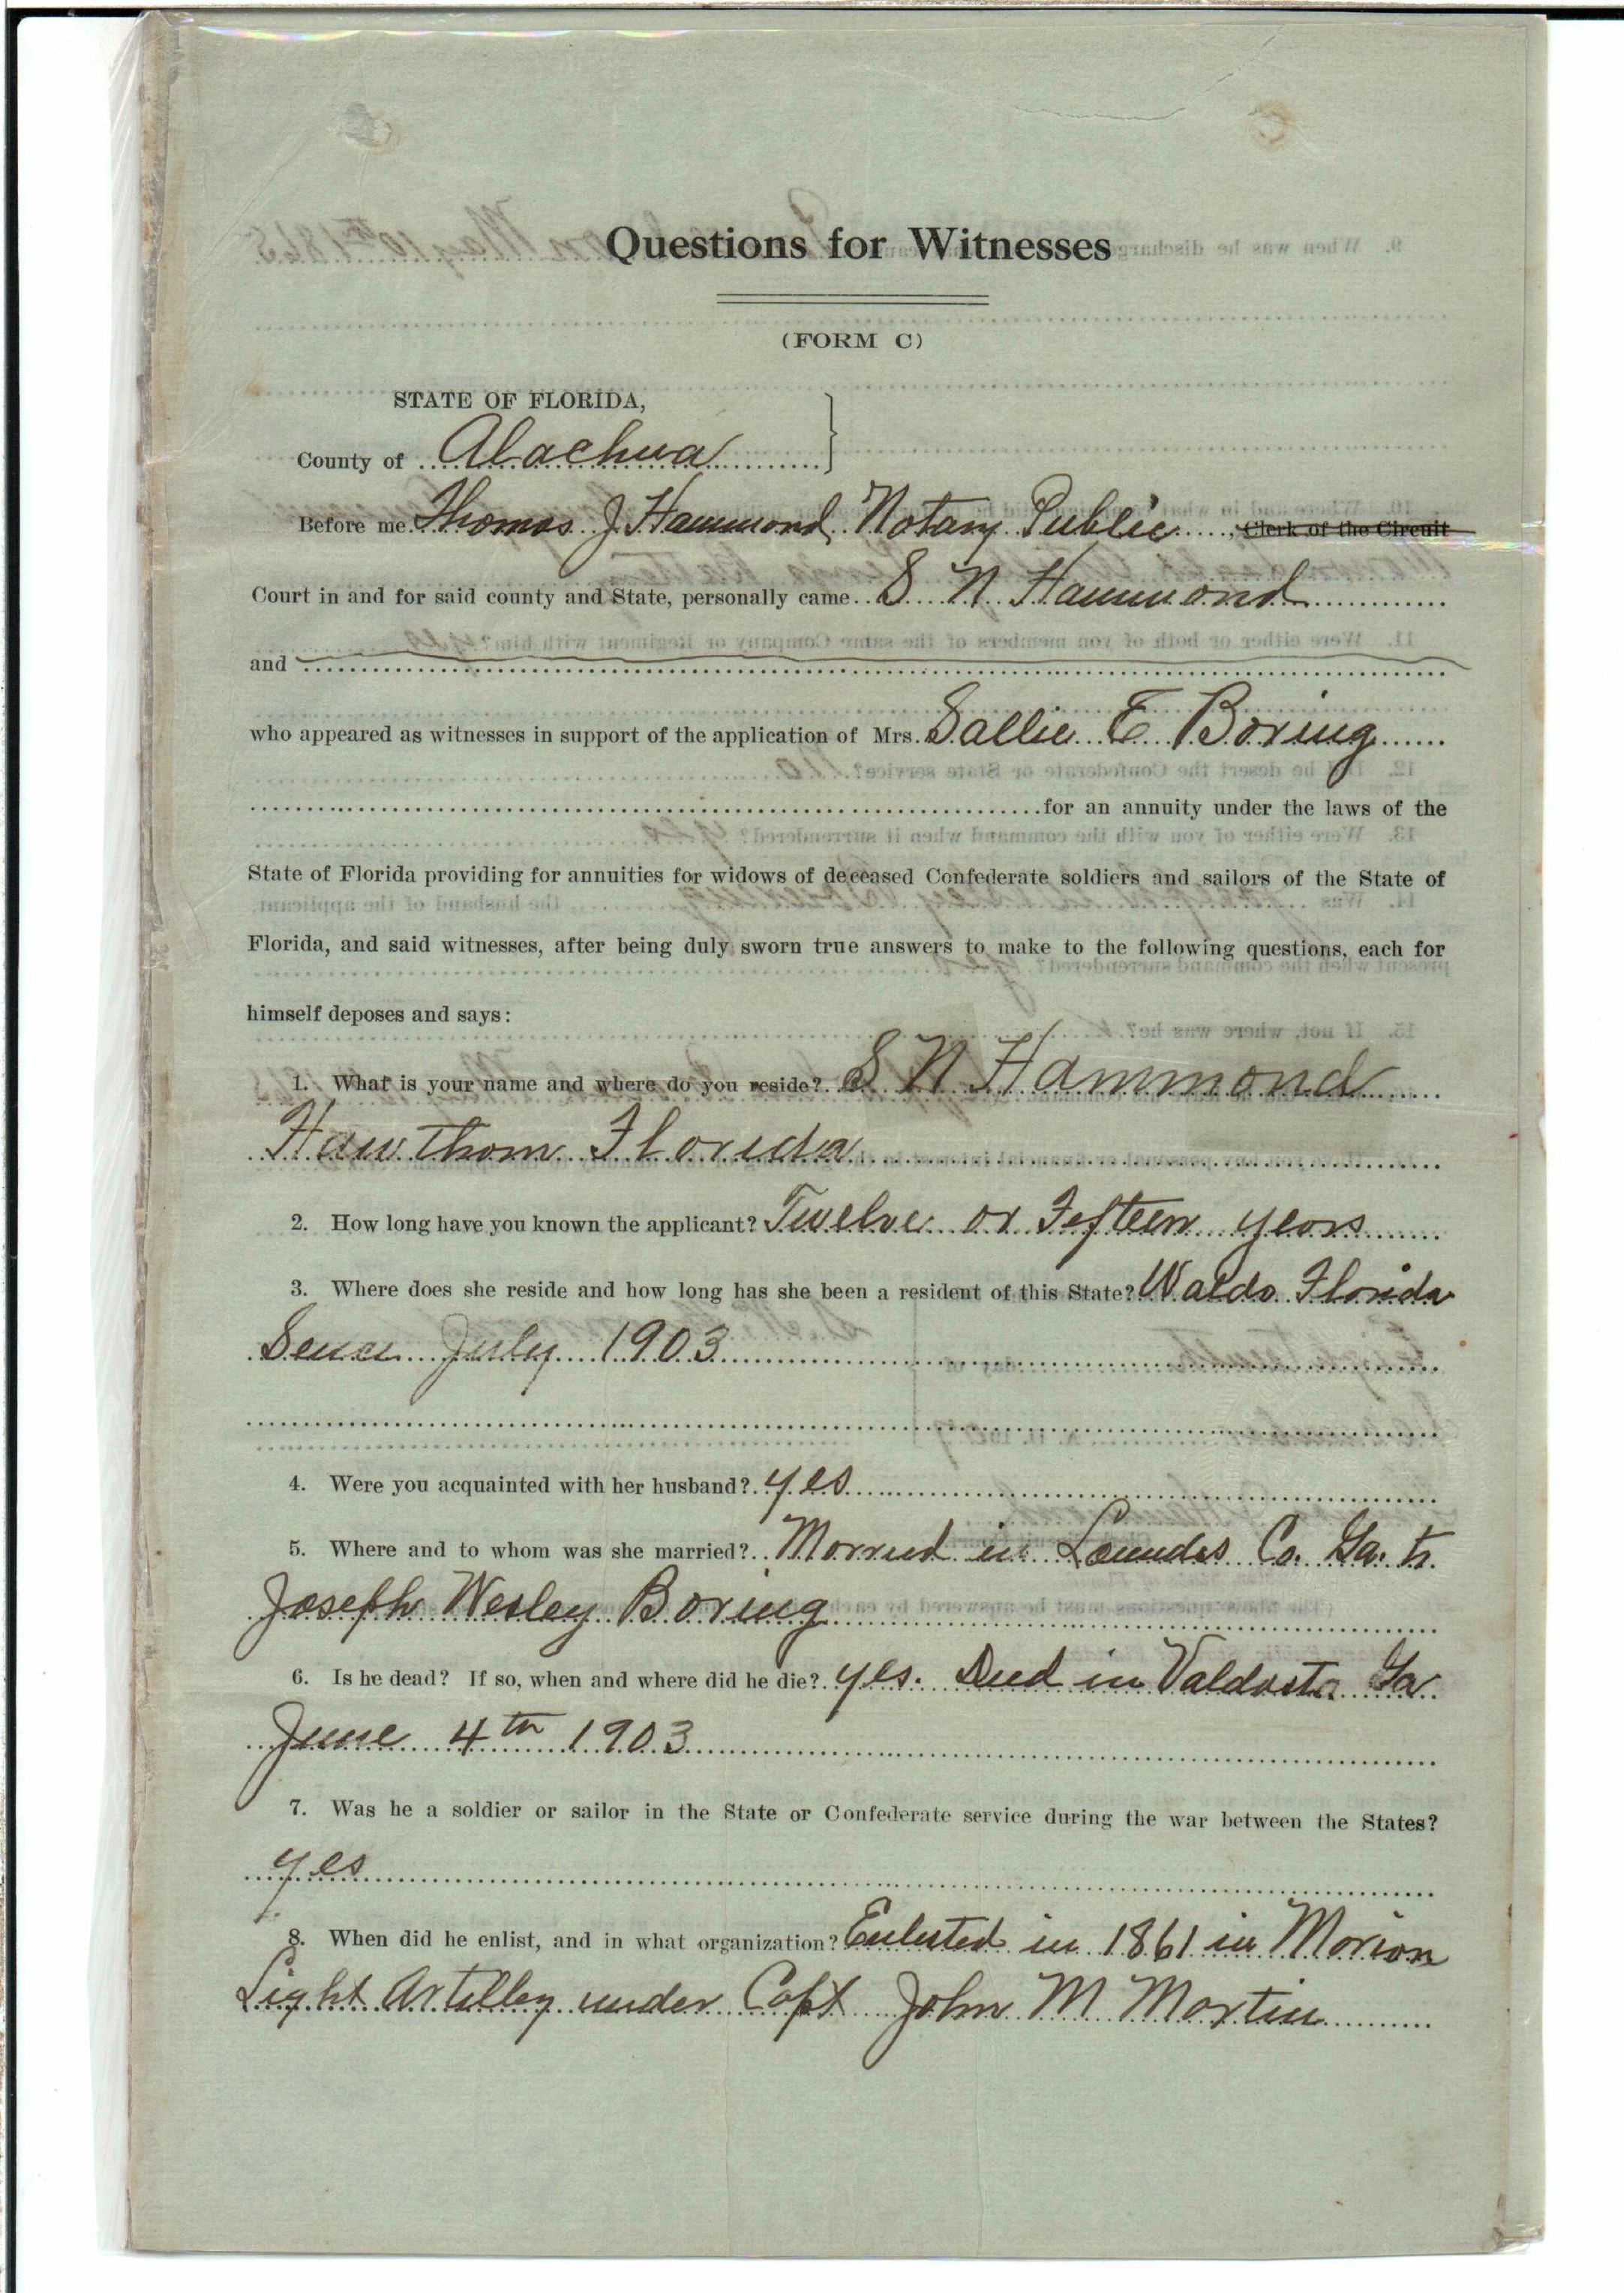 Questions for Witnesses
(FORM C)
STATE OF FLORIDA,
County of Alachua
Before me Thomas J. Hammond, Notary Public, Clerk of the Circuit
Court in and for said county and State, personally came S N Hammond
and
who appeared as witnesses in support of the application of Mrs. Sallie E Boring
for an annuity under the laws of the
State of Florida providing for annuities for widows of deceased Confederate soldiers and sailors of the State of
Florida, and said witnesses, after being duly sworn true answers to make to the following questions, each for
himself deposes and says:
1. What is your name and where do you reside? S N Hammond
Hawthorn Florida
2. How long have you known the applicant? Twelve or Fifteen years
3. Where does she reside and how long has she been a resident of this State? Waldo Florida
Since July 1903
4. Were you acquainted with her husband? yes
5. Where and to whom was she married? Married in Lowndes Co. Ga. to
Joseph Wesley Boring
6. Is he dead? If so, when and where did he die? yes. Died in Valdosta Ga
June 4th 1903
7. Was he a soldier or sailor in the State or Confederate service during the war between the States?
yes
8. When did he enlist, and in what organization? Enlisted in 1861 in Marion
Light Artillery under Capt John M Martin